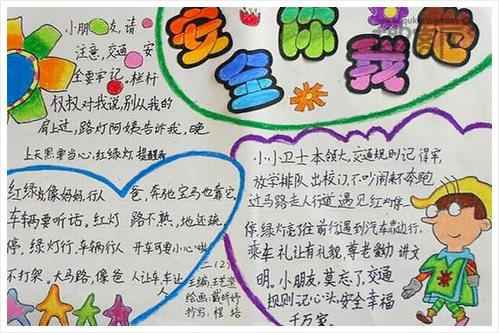 安全你我他
小朋友,请
注意,交通安
全要牢记。栏杆
叔叔对我说,别从我的
肩上过,路灯阿姨告诉我,晚
上天黑要当心,红绿灯提醒
红绿灯像妈妈,行人
车辆要听话。红灯
停,绿灯行,车辆行人
不打架。大马路,像爸
爸,奔驰宝马也靠它,
路不熟,地还孬,
开车可要小心
人让车,车让
人
二(2)
主编:王
绘画:戴
抄写:程培
小小卫士本领大,交通规则记得牢,
放学排队出校门,不吵闹来不奔跑
过马路走人行道,遇见红灯停
停,绿灯亮了往前行,遇到汽车靠边行,
乘车礼让有礼貌,尊老爱幼讲文
明。小朋友,莫忘了,交通
规则记心头,安全幸福
千万家。